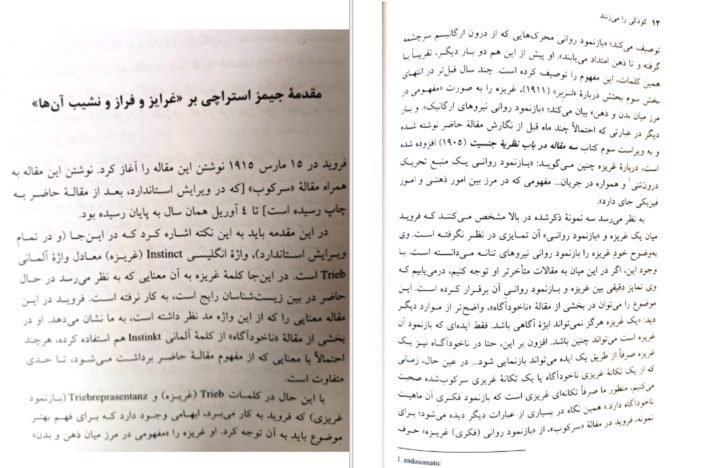 مقدمهٔ جیمز استراچی بر «غرایز و فراز و نشیب آن‌ها»
فروید در ۱۵ مارس ۱۹۱۵ نوشتن این مقاله را آغاز کرد. نوشتن این مقاله به
همراه مقالهٔ «سرکوب» [که در ویرایش استاندارد، بعد از مقالهٔ حاضر به
چاپ رسیده است] تا ٤ آوریل همان سال به پایان رسیده بود.
در این مقدمه باید به این نکته اشاره کرد که در این‌جا (و در تمام
ویرایش استاندارد)، واژهٔ انگلیسی Instinct (غریزه) معادل واژهٔ آلمانی
Trieb است. در این‌جا کلمهٔ غریزه به آن معنایی که به نظر می‌رسد در حال
حاضر در بین زیست‌شناسان رایج است، به کار نرفته است. فروید در این
مقاله معنایی را که از این واژه مد نظر داشته است، به ما نشان می‌دهد. او در
بخشی از مقالهٔ «ناخودآگاه» از کلمهٔ آلمانی Instinkt هم استفاده کرده، هرچند
احتمالاً با معنایی که از مفهوم مقالهٔ حاضر برداشت می‌شود، تا حدی
متفاوت است.
با این حال در کلمات Trieb (غریزه) و Triebreprasentanz (بازنمود
غریزی) که فروید به کار می‌برد، ابهامی وجود دارد که برای فهم بهتر
موضوع باید به آن توجه کرد. او غریزه را «مفهومی در مرز میان ذهن و بدن»
۱۲ کودکی را می‌زنند
توصیف می‌کند؛ «بازنمود روانی محرک‌هایی که از درون ارگانیسم سرچشمه
گرفته و تا ذهن امتداد می‌یابند». او پیش از این هم دو بار دیگر، تقریباً با
همین کلمات، این مفهوم را توصیف کرده است. چند سال قبل‌تر در انتهای
بخش سوم بحثش دربارهٔ «شربر» (۱۹۱۱)، غریزه را به صورت «مفهومی در
مرز میان بدن و ذهن» بیان می‌کند؛ «بازنمود روانی نیروهای ارگانیک». و بار
دیگر در عبارتی که احتمالاً چند ماه قبل از نگارش مقالهٔ حاضر نوشته شده
و به ویراست سوم کتاب سه مقاله در باب نظریهٔ جنسیت (۱۹۰۵) افزوده شده
است، دربارهٔ غریزه چنین می‌گوید: «بازنمود روانی یک منبع تحریک
درون‌تنی¹ و همواره در جریان... مفهومی که در مرز بین امور ذهنی و امور
فیزیکی جای دارد».
به نظر می‌رسد سه نمونهٔ ذکرشده در بالا مشخص می‌کنند که فروید
میان یک غریزه و «بازنمود روانی» آن تمایزی در نظر نگرفته است. وی
به‌وضوح خود غریزه را بازنمود روانی نیروهای تنانه می‌دانسته است. با
وجود این، اگر در این میان به مقالات متأخرتر او توجه کنیم، درمی‌یابیم که
وی تمایز دقیقی بین غریزه و بازنمود روانی آن برقرار کرده است. این
موضوع را می‌توان در بخشی از مقالهٔ «ناخودآگاه»، واضح‌تر از موارد دیگر
دید: «یک غریزه هرگز نمی‌تواند ابژهٔ آگاهی باشد. فقط ایده‌ای که بازنمود
غریزه است می‌تواند چنین باشد. افزون بر این، حتا در ناخودآگاه نیز یک
غریزه صرفاً از طریق یک ایده می‌تواند بازنمایی شود... در عین حال، زمانی
که از یک تکانهٔ غریزی ناخودآگاه یا یک تکانهٔ غریزی سرکوب‌شده صحبت
می‌کنیم، منظور ما صرفاً تکانه‌ای غریزی است که بازنمود فکری آن ماهیت
ناخودآگاه دارد.» همین نگاه در بسیاری از عبارات دیگر دیده می‌شود؛ برای
نمونه، فروید در مقالهٔ «سرکوب»، از «بازنمود روانی (فکری) غریزه» حرف
1. endosomatic